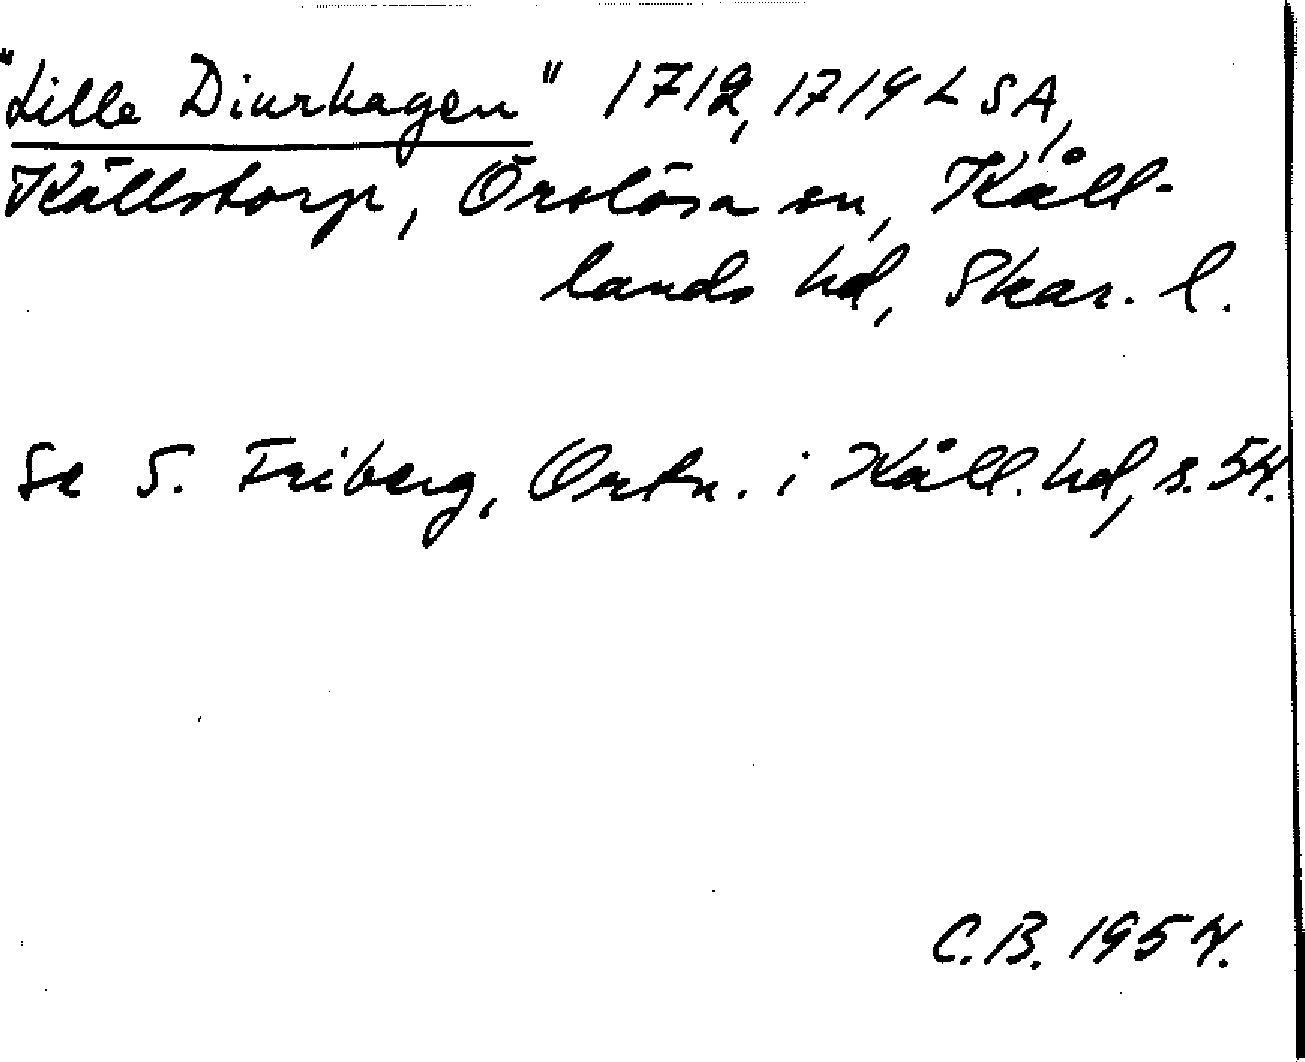 "Lille Diurhagen" 1712, 1719 LSA,
Källstorp, Örslösa sn, Kåll-
lands hd, Skar. l.
Se S. Friberg, Ortn. i Kåll. hd, s. 54.
C.B. 1954.